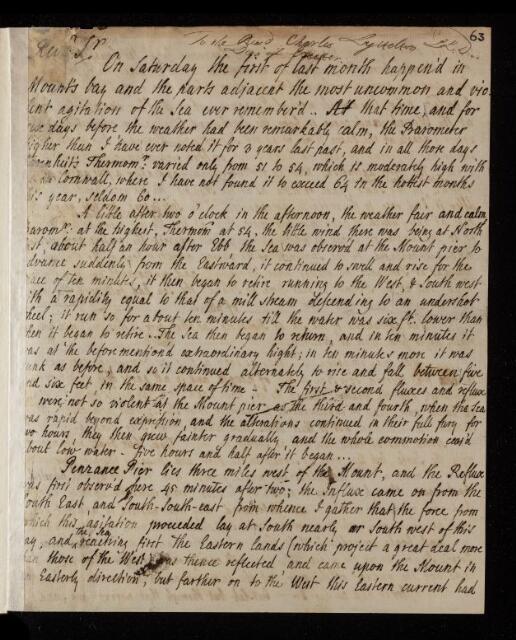 63
To the Revd. Charles Lyttelton LL.D.
Revd. Sr.
On Saturday the first of last month happen'd in
Mounts bay and the parts adjacent the most uncommon and vio-
lent agitation of the Sea ever remember'd.. At that time, and for
days before the weather had been remarkably calm, the Barometer
higher than I have ever noted it for 3 years last past, and in all those days
Farenheit's Thermomr. varied only from 51 to 54, which is moderately high with
Cornwall, where I have not found it to exceed 64 in the hottest months
this year, seldom 60...
A little after two o'clock in the afternoon, the weather fair and calm,
Baromr. at the highest, Thermomr at 54, the little wind there was being at North
East, about half an hour after Ebb the Sea was observed at the Mount pier to
advance suddenly from the Eastward, it continued to swell and rise for the
space of ten minutes, it then began to retire running to the West, & South west
with a rapidity equal to that of a mill stream descending to an undershot
wheel; it run so for about ten minutes till the water was six ft. lower than
when it began to retire.. The Sea then began to return, and in ten minutes it
was at the before mentiond extraordinary hight; in ten minutes more it was
sunk as before, and so it continued alternately to rise and fall between five
and six feet in the same space of time - The first & second fluxes and reflux
were not so violent at the Mount pier as the third and fourth, when the Sea
was rapid beyond expression, and the alterations continued in their full fury for
two hours, they then grew fainter gradually, and the whole commotion ceas'd
about low water - five hours and half after it began...
Penzance Pier lies three miles west of the Mount, and the Reflux
was first observ'd here 45 minutes after two; the Influx came on from the
South East and South-South-east, from whence I gather that the force from
which this agitation proceeded lay at South nearly or South west of this
Bay, and the Sea reaching first the Eastern lands (which project a great deal more
than those of the West) was thence reflected and came upon the Mount in
an Easterly direction; but farther on to the West this Eastern current had